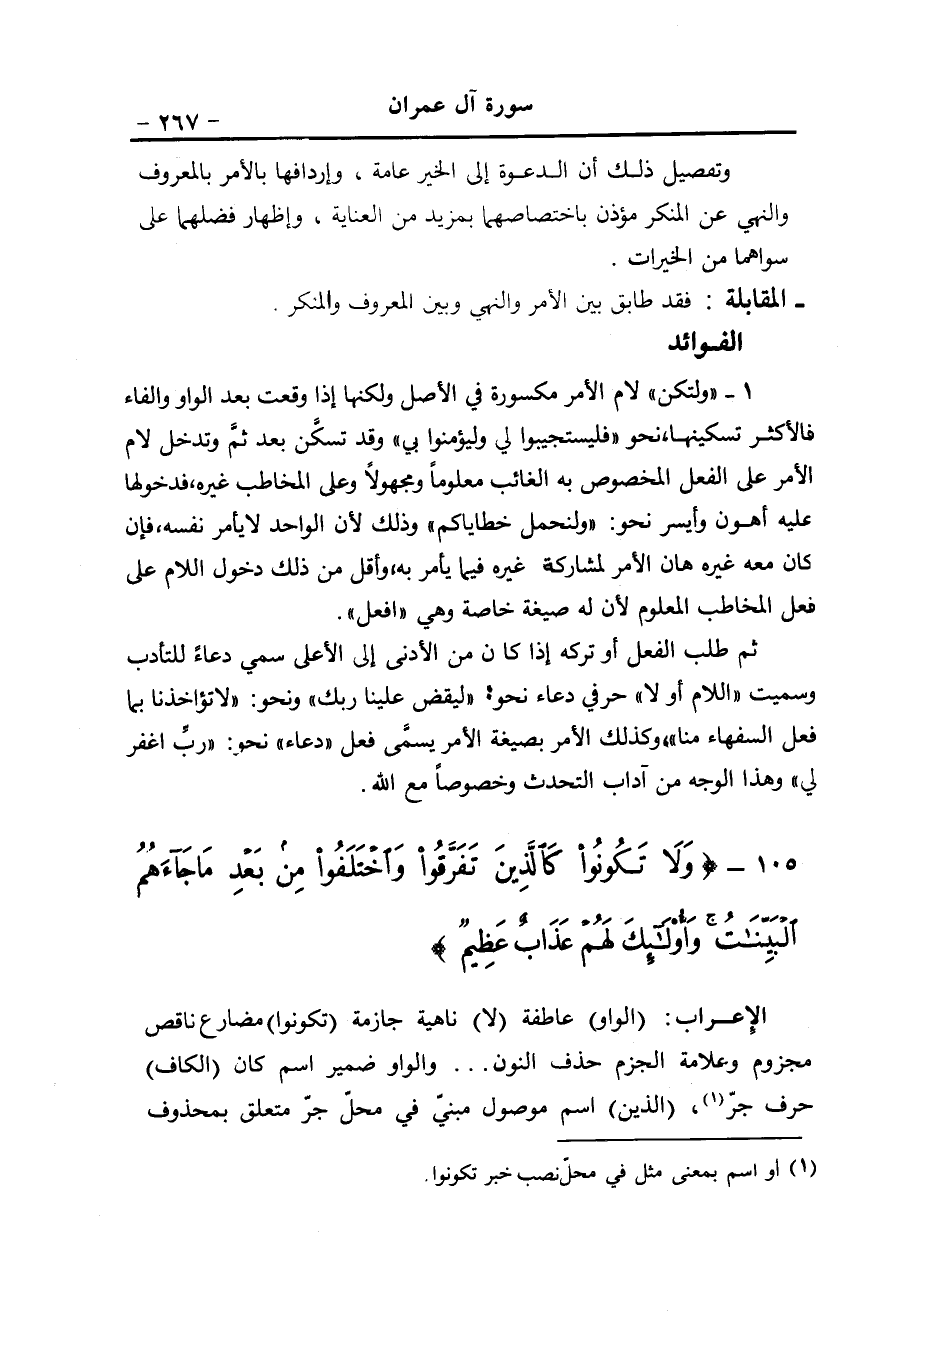 سورة آل عمران
- ٢٦٧ -
وتفصيل ذلك أن الدعوة إلى الخير عامة ، وإردافها بالأمر بالمعروف
والنهي عن المنكر مؤذن باختصاصهما بمزيد من العناية ، وإظهار فضلهما على
سواهما من الخيرات .
ـ المقابلة : فقد طابق بين الأمر والنهي وبين المعروف والمنكر .
الفوائد
١ ـ «ولتكن» لام الأمر مكسورة في الأصل ولكنها إذا وقعت بعد الواو والفاء
فالأكثر تسكينها،نحو «فليستجيبوا لي وليؤمنوا بي» وقد تسكَّن بعد ثمَّ وتدخل لام
الأمر على الفعل المخصوص به الغائب معلوماً ومجهولاً وعلى المخاطب غيره،فدخولها
عليه أهون وأيسر نحو: «ولنحمل خطاياكم» وذلك لأن الواحد لايأمر نفسه،فإن
كان معه غيره هان الأمر لمشاركة غيره فيما يأمر به،وأقل من ذلك دخول اللام على
فعل المخاطب المعلوم لأن له صيغة خاصة وهي «افعل».
ثم طلب الفعل أو تركه إذا كا ن من الأدنى إلى الأعلى سمي دعاءً للتأدب
وسميت «اللام أو لا» حرفي دعاء نحو: «ليقض علينا ربك» ونحو: «لاتؤاخذنا بما
فعل السفهاء منا»،وكذلك الأمر بصيغة الأمر يسمَّى فعل «دعاء» نحو: «ربِّ اغفر
لي» وهذا الوجه من آداب التحدث وخصوصاً مع الله.
١٠٥ ـ ﴿ وَلَا تَكُونُواْ كَٱلَّذِينَ تَفَرَّقُواْ وَٱخْتَلَفُواْ مِنۢ بَعْدِ مَاجَآءَهُمُ
ٱلْبَيِّنَٰتُ ۚ وَأُوْلَٰٓئِكَ لَهُمْ عَذَابٌ عَظِيمٌ ﴾
الإعراب: (الواو) عاطفة (لا) ناهية جازمة (تكونوا)مضارع ناقص
مجزوم وعلامة الجزم حذف النون... والواو ضمير اسم كان (الكاف)
حرف جرّ(١)، (الذين) اسم موصول مبنيّ في محلّ جرّ متعلق بمحذوف
(١) أو اسم بمعنى مثل في محلّ نصب خبر تكونوا.